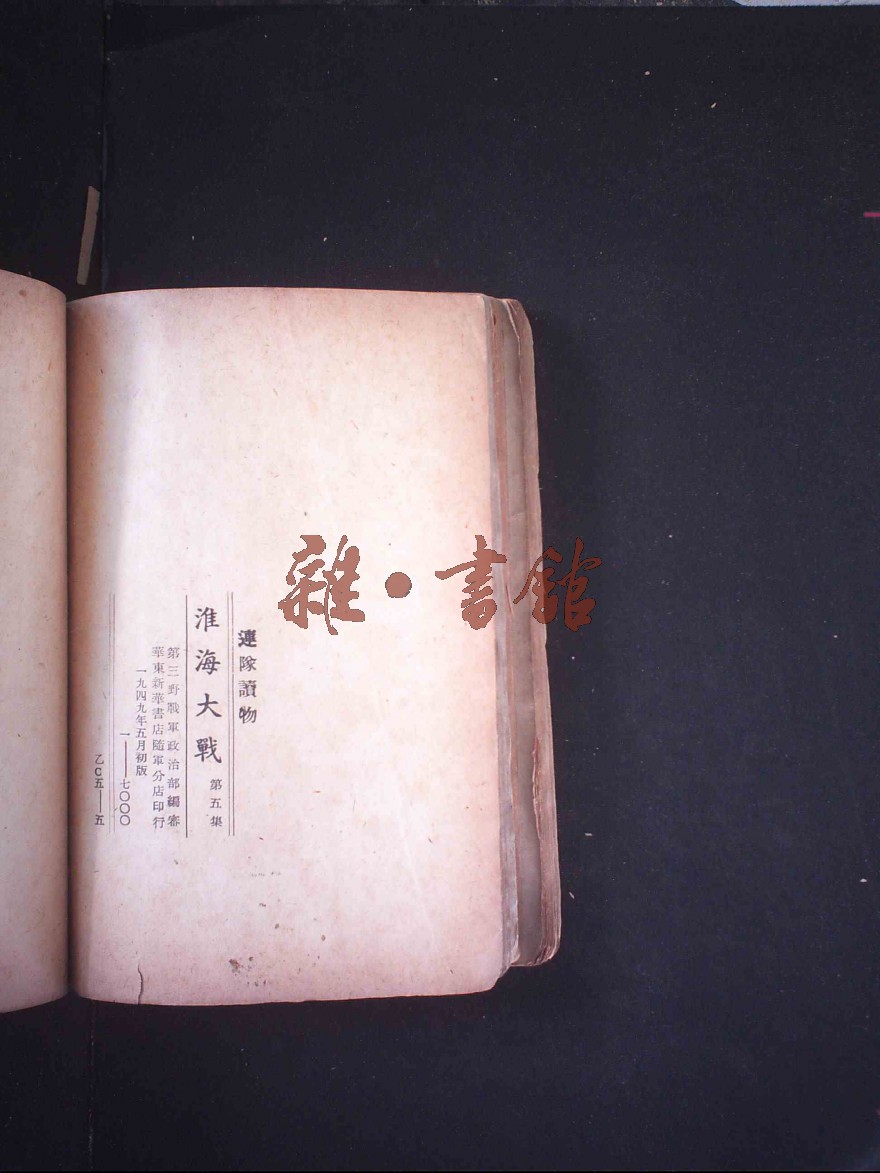 連隊讀物
淮海大戰 第五集
第三野戰軍政治部編審
華東新華書店隨軍分店印行
一九四九年五月初版
一——七〇〇〇
乙C五——五
雜·書館